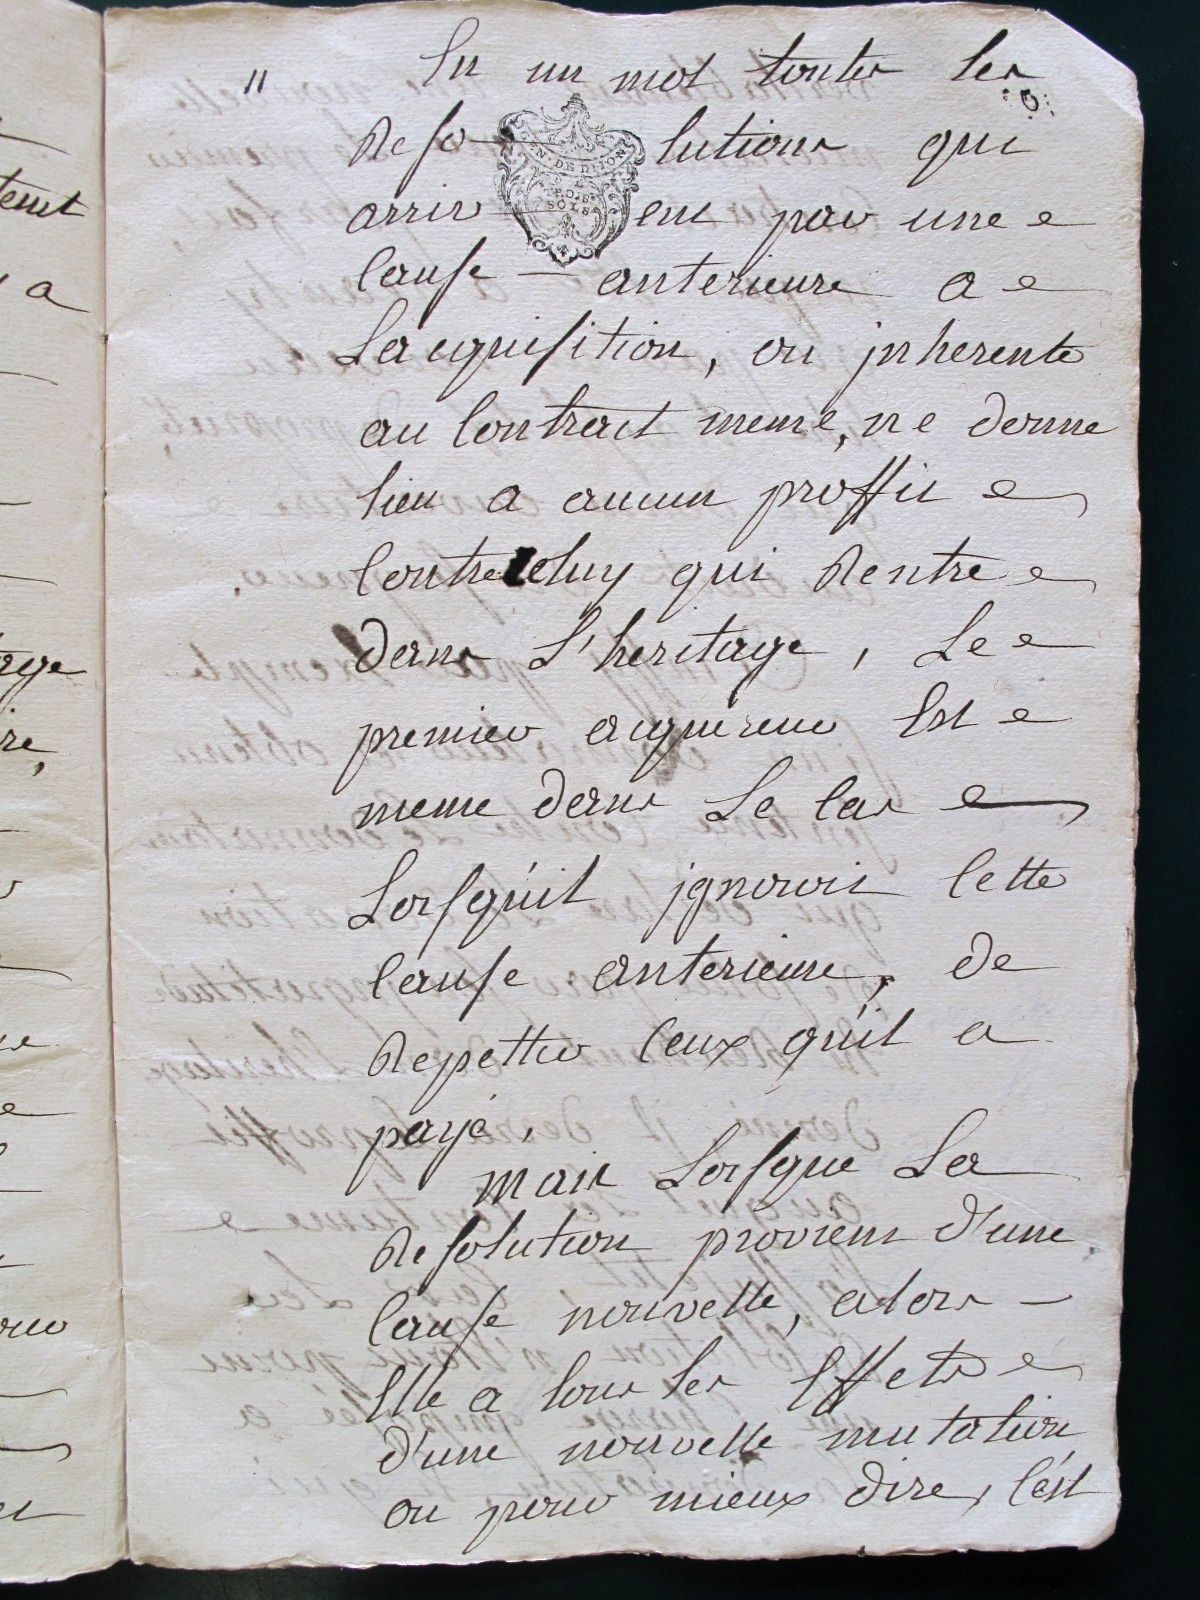 11
En un mot toutes les
Reso — lutions qui
GEN. DE DIJON
SOLS
arriv — ent par une
Cause — anterieure a
Lacquisition, ou jnherente
au Contract meme, ne donne
lieu a aucun proffit
Contre Celuy qui Rentre
dans L'heritage, Le
premier acquereur Est
meme dans Le Cas
Lorsqu'il jgnoroit Cette
Cause anterieure, de
Repetter Ceux qu'il a
payé,
mais Lorsque La
Resolution provient d'une
Cause nouvelle, alors —
Elle a tous les Effets
d'une nouvelle mutation
ou pour mieux dire, C'est